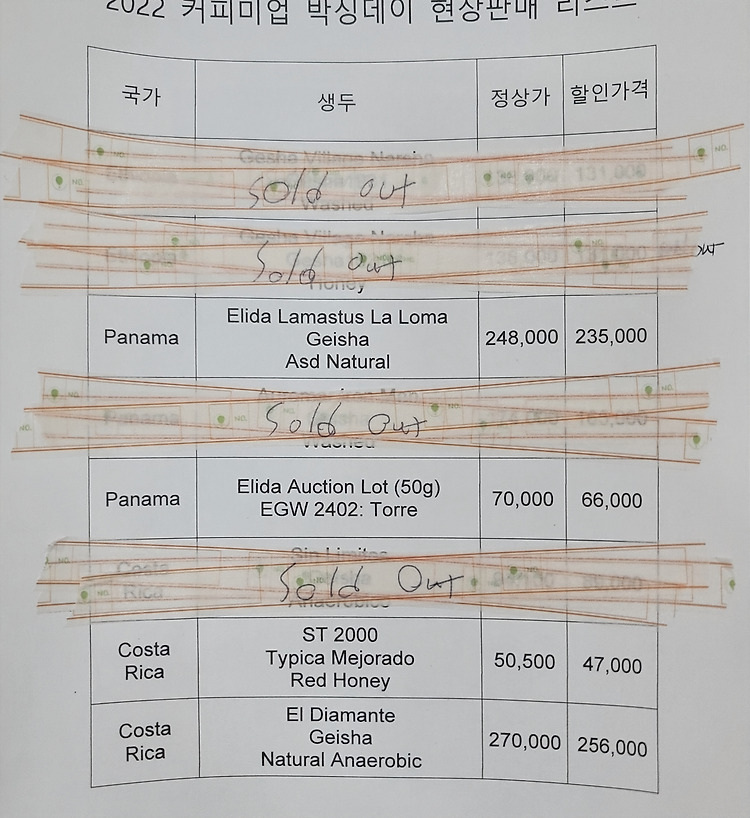 2022 커피미업 박싱데이 현장판매 리스트
국가 생두 정상가 할인가격
Gesha Village Narsha
131,000
Sold out
Washed
Gesha Village Narsha
Sold Out
out
Honey
Panama Elida Lamastus La Loma Geisha Asd Natural 248,000 235,000
Panama
Sold Out
Washed
Panama Elida Auction Lot (50g) EGW 2402: Torre 70,000 66,000
Costa Rica
Sold Out
Anaerobics
Costa Rica ST 2000 Typica Mejorado Red Honey 50,500 47,000
Costa Rica El Diamante Geisha Natural Anaerobic 270,000 256,000